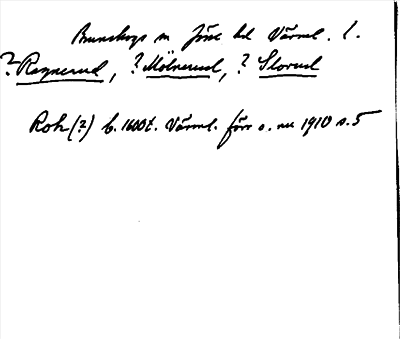 Brunskogs sn Jösse hd Värml. l.
? Regnerud, ? Mölnerud, ? Slorud
Rok (?) b. 1600t. Värml. förr o. nu 1910 s. 5